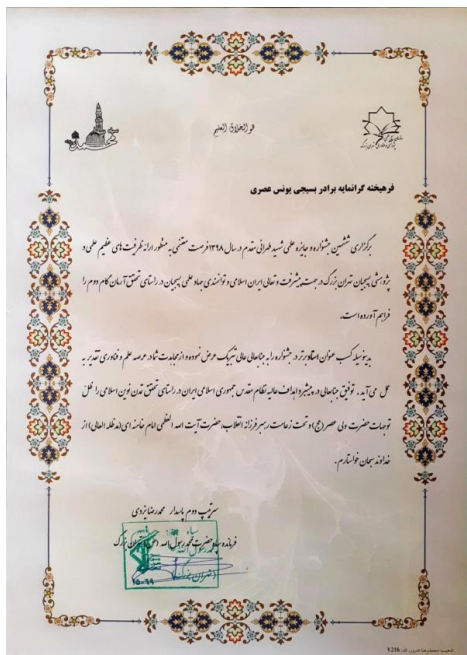 هو الخلاق العلیم
فرهیخته گرانمایه برادر بسیجی یونس عصری
برگزاری ششمین جشنواره و جایزه علمی شهید طهرانی مقدم در سال ۱۳۹۸ فرصت مغتنمی به منظور ارائه ظرفیت های عظیم علمی و
پژوهشی بسیجیان تهران بزرگ در جهت پیشرفت و تعالی ایران اسلامی و توانمندی جهاد علمی بسیجیان در راستای تحقق آرمان گام دوم را
فراهم آورده است.
بدینوسیله کسب عنوان استاد برتر در جشنواره را به جنابعالی تبریک عرض نموده و از مجاهدت شما در عرصه علم و فناوری تقدیر به
عمل می آید. توفیق جنابعالی در پیشبرد اهداف عالیه نظام مقدس جمهوری اسلامی ایران در راستای تحقق تمدن نوین اسلامی را در ظل
توجهات حضرت ولی عصر (عج) و تحت زعامت رهبر فرزانه انقلاب، حضرت آیت الله العظمی امام خامنه ای (مدظله العالی) از
خداوند سبحان خواستارم.
سرتیپ دوم پاسدار محمدرضا یزدی
فرمانده سپاه حضرت محمد رسول الله تهران بزرگ